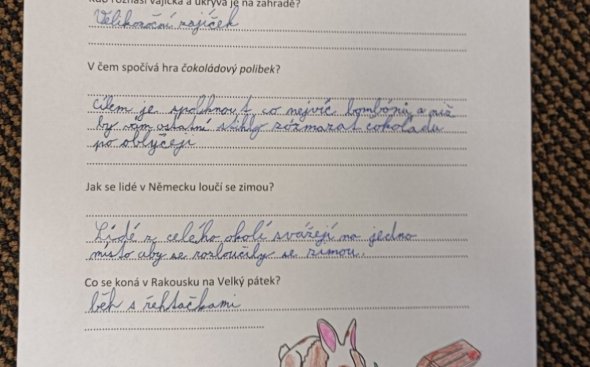 Kdo roznáší vajíčka a ukrývá je na zahradě?
Velikonoční zajíček
V čem spočívá hra čokoládový polibek?
Cílem je spolknout co nejvíc bombónů, a niž
by vám ostatní stihly rozmazat čokoládu
po oblyčeji
Jak se lidé v Německu loučí se zimou?
Lidé z celého okolí svážejí na jedno
místo aby se rozloučily se zimou.
Co se koná v Rakousku na Velký pátek?
běh s řehtačkami